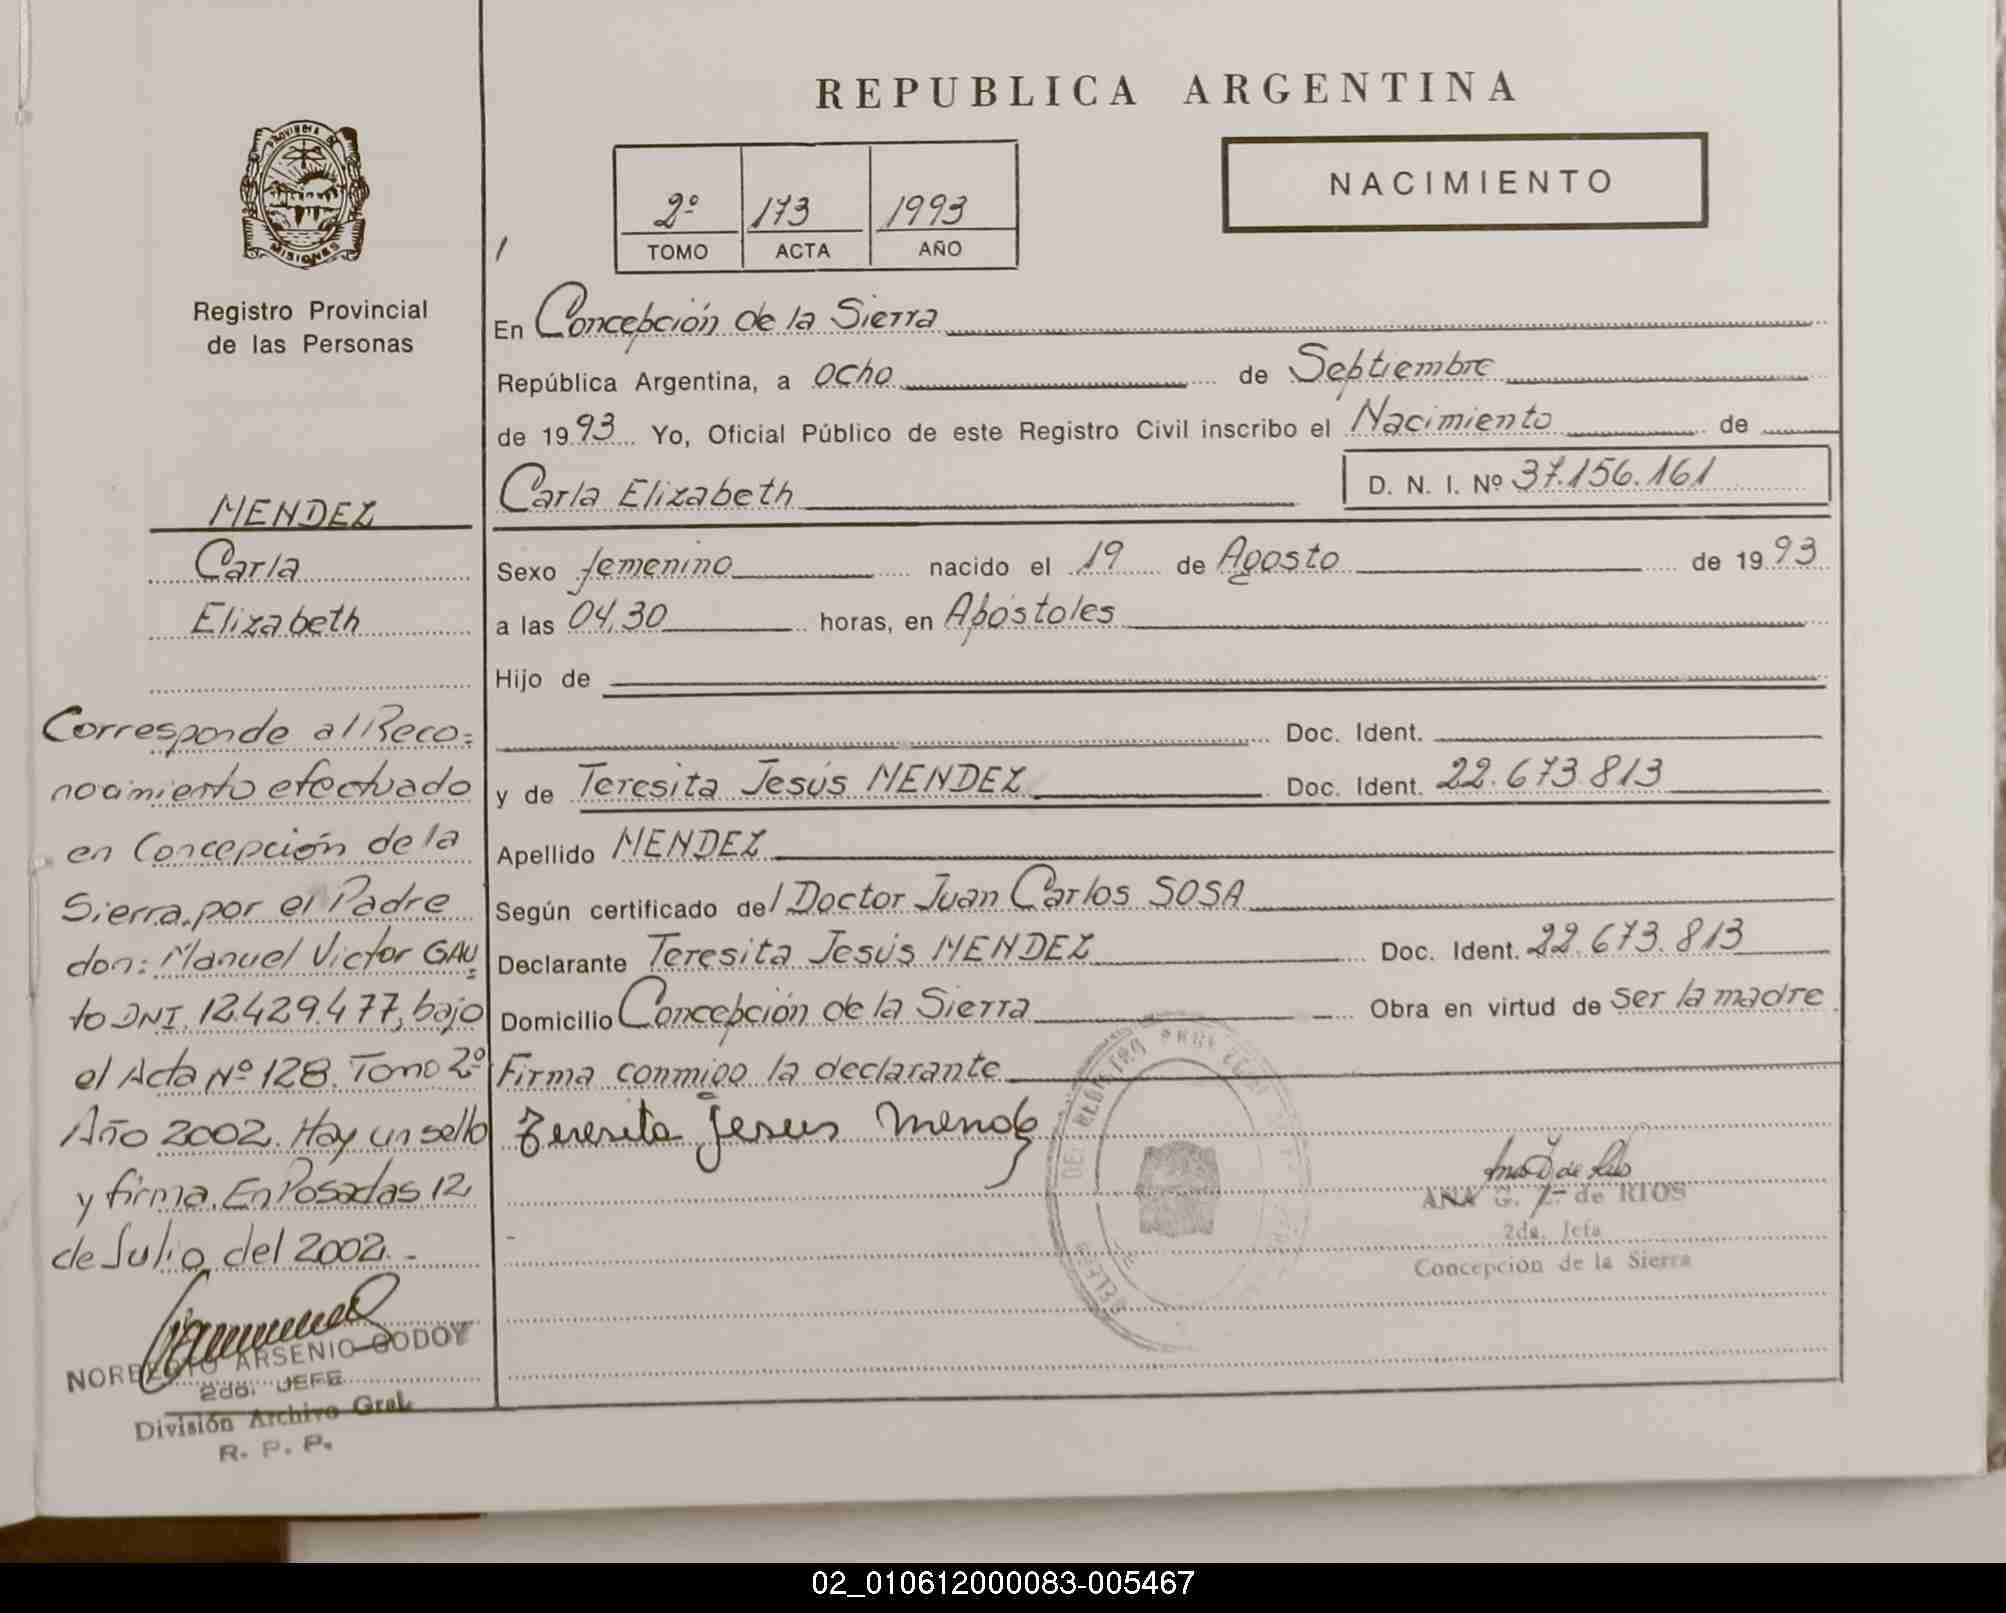 REPUBLICA ARGENTINA
NACIMIENTO
2º 173 1993
TOMO ACTA AÑO
PROVINCIA DE
MISIONES
Registro Provincial
de las Personas
En Concepción de la Sierra
República Argentina, a ocho de Septiembre
de 1993 Yo, Oficial Público de este Registro Civil inscribo el Nacimiento de
Carla Elizabeth D. N. I. Nº 37.156.161
Sexo femenino nacido el 19 de Agosto de 1993
a las 04,30 horas, en Apóstoles
Hijo de
Doc. Ident.
y de Teresita Jesús MENDEZ Doc. Ident. 22.673.813
Apellido MENDEZ
Según certificado del Doctor Juan Carlos SOSA
Declarante Teresita Jesús MENDEZ Doc. Ident. 22.673.813
Domicilio Concepción de la Sierra Obra en virtud de ser la madre
Firma conmigo la declarante
Teresita Jesus Mendez
ANA G. Z. de RIOS
2da. Jefa
Concepción de la Sierra
MENDEZ
Carla
Elizabeth
Corresponde al Reco=
nocimiento efectuado
en Concepción de la
Sierra, por el Padre
don: Manuel Victor GAU=
to DNI. 12.429.477, bajo
el Acta Nº 128. Tomo 2º
Año 2002. Hay un sello
y firma. En Posadas 12
de Julio del 2002.-
NORBERTO ARSENIO GODOY
2do. JEFE
División Archivo Gral.
R. P. P.
02_010612000083-005467